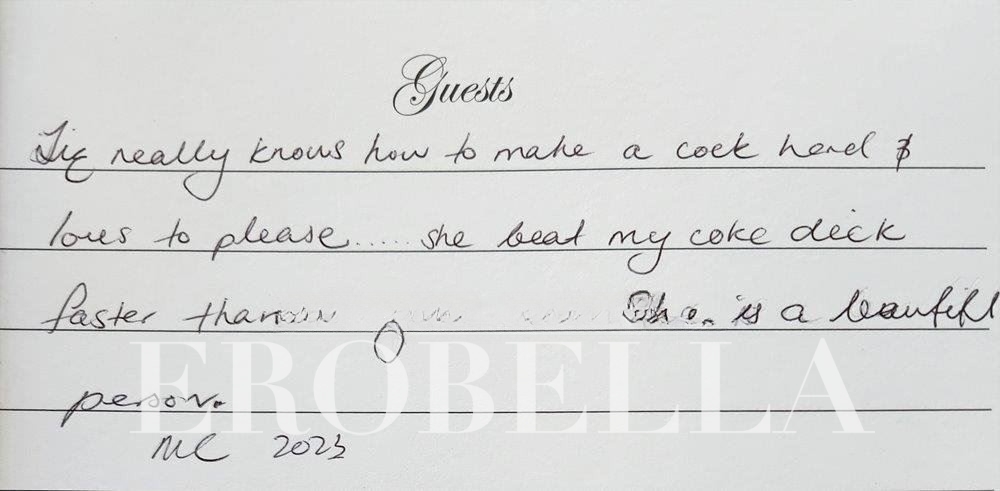 Guests
Liz really knows how to make a cock hard &
loves to please..... she beat my coke dick
faster than She is a beautiful
person.
EROBELLA
MC 2023